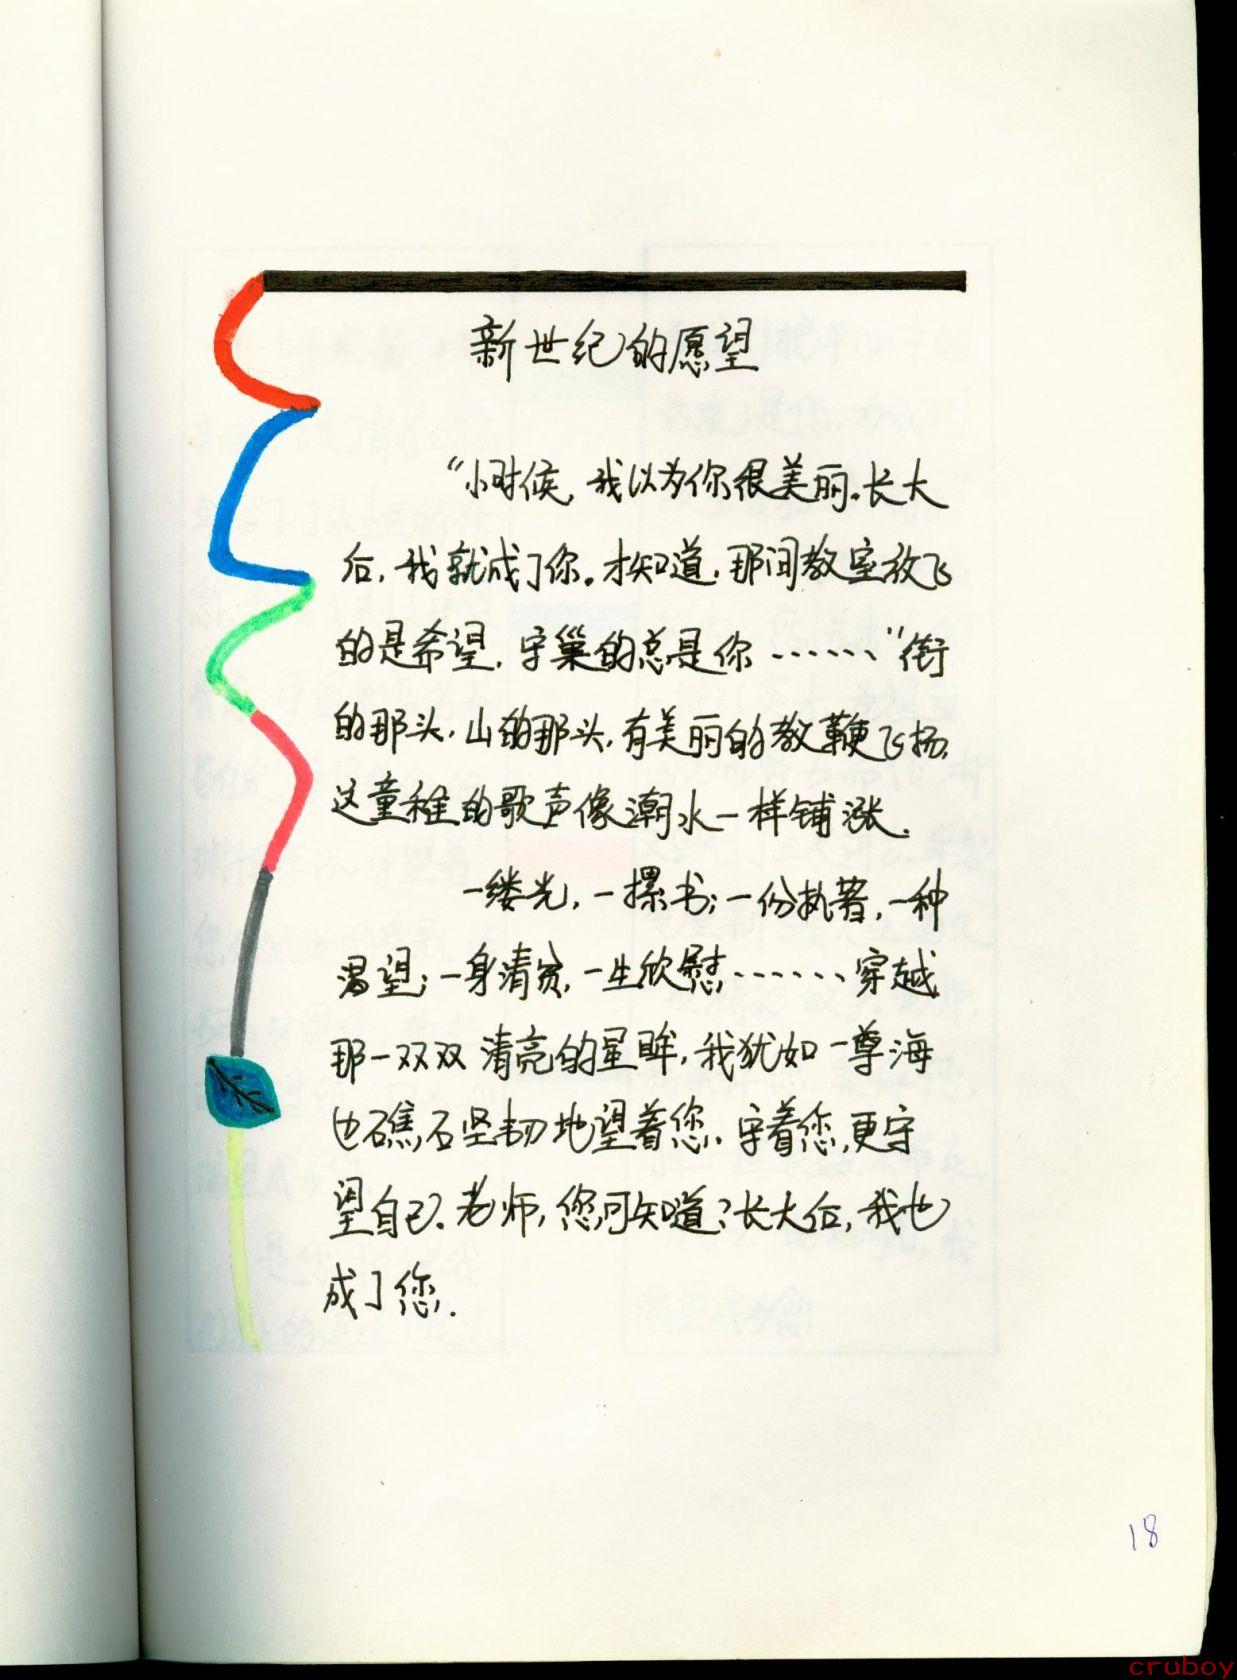 新世纪的愿望
“小时候,我以为你很美丽。长大
后,我就成了你。才知道,那间教室放飞
的是希望,守巢的总是你……”街
的那头,山的那头,有美丽的教鞭飞扬,
这童稚的歌声像潮水一样铺涨.
一缕光,一摞书;一份执著,一种
渴望;一身清贫,一生欣慰……穿越
那一双双清亮的星眸,我犹如一尊海
边礁石坚韧地望着您.守着您,更守
望自己.老师,您可知道?长大后,我也
成了您.
18
cruboy